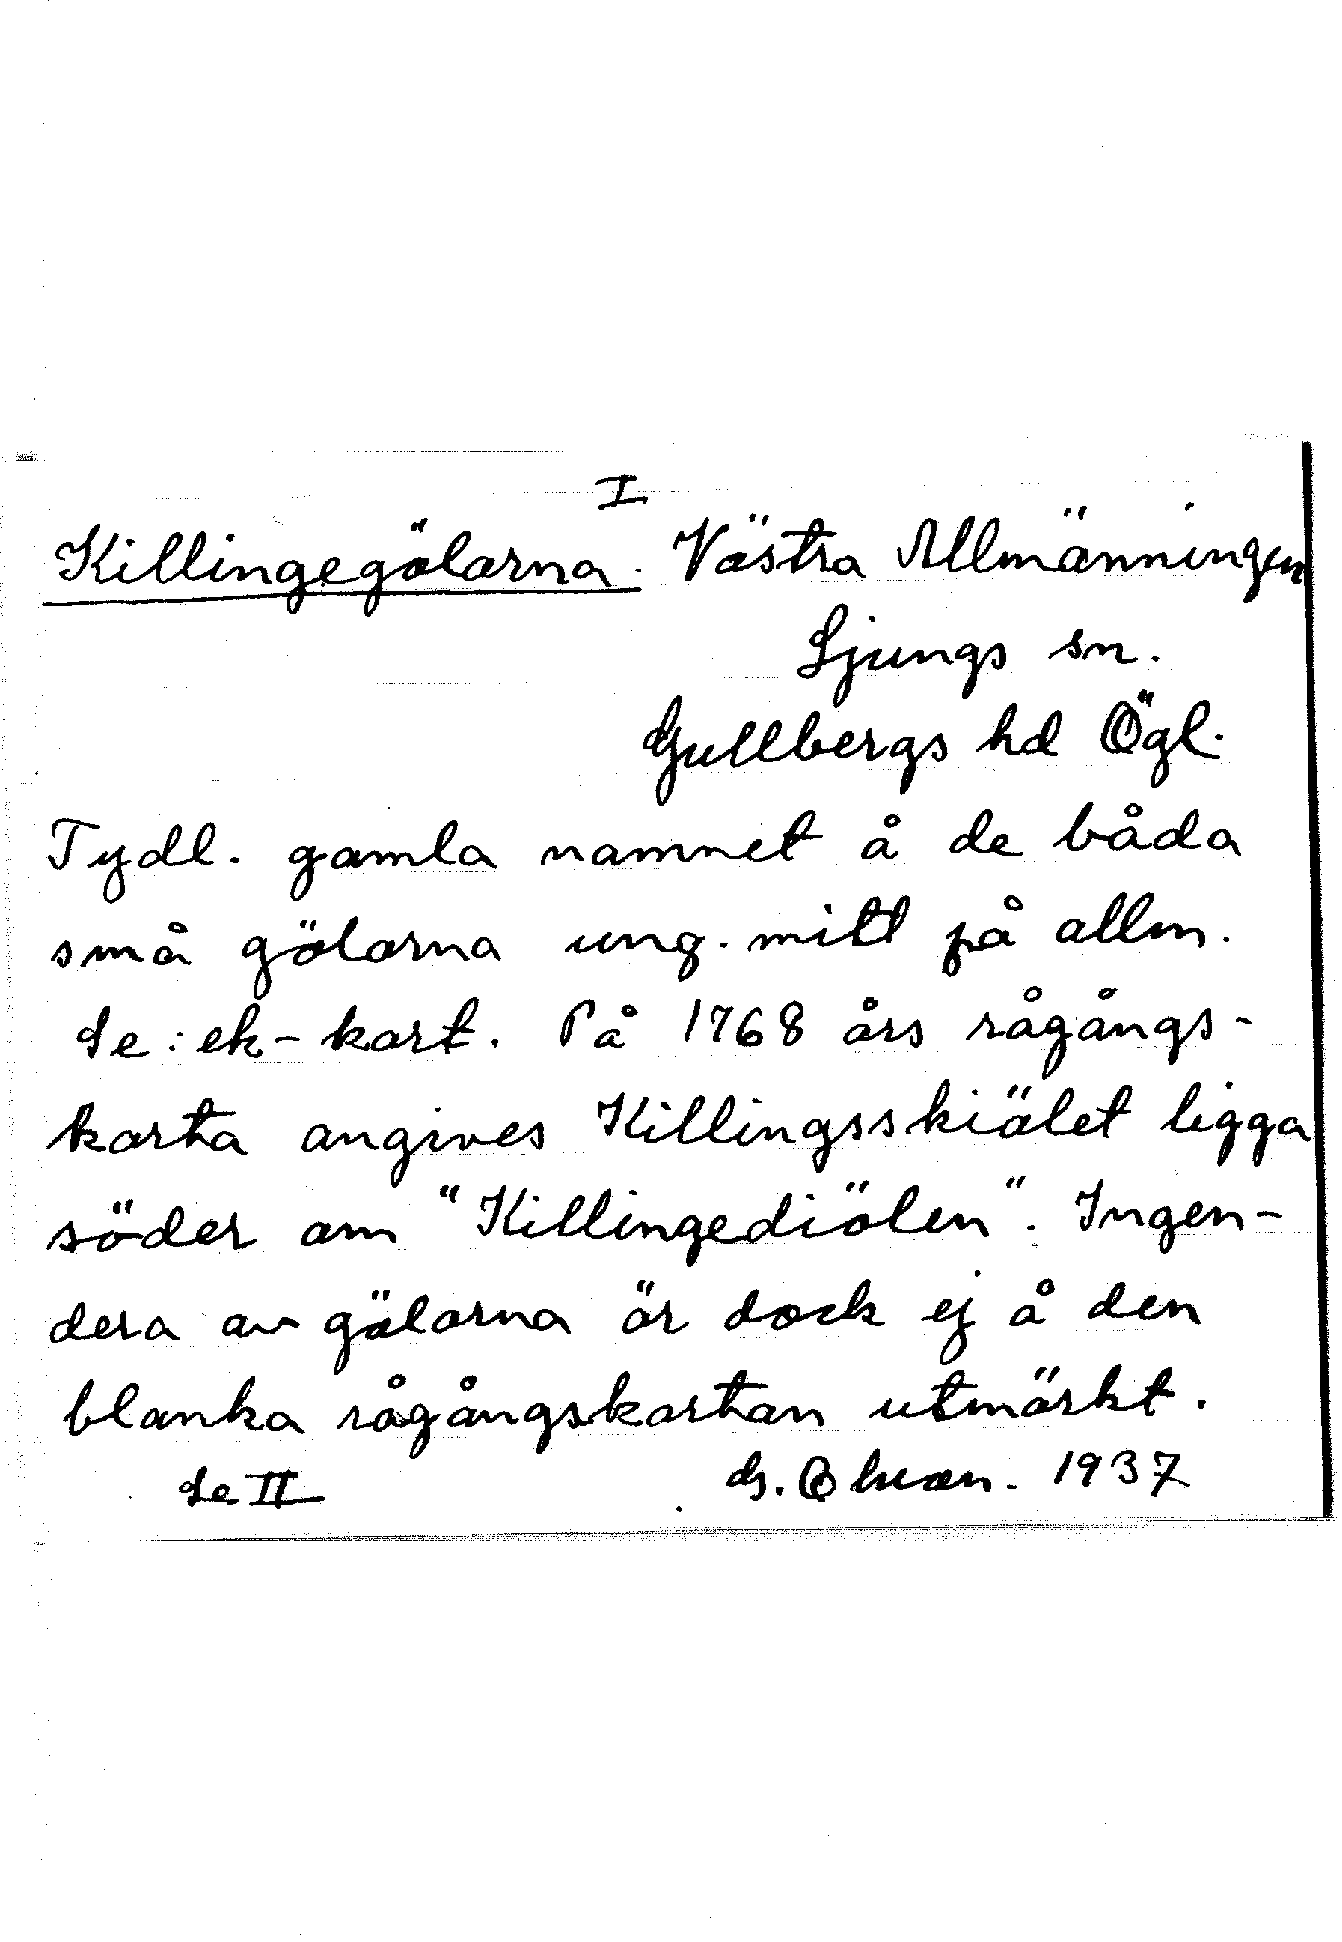 I
Killingegölarna. Västra Allmänningen
Ljungs sn.
Gullbergs hd Ögl.
Tydl. gamla namnet å de båda
små gölarna ung. mitt på allm.
Se: ek-kart. På 1768 års rågångs-
karta angives Killingsskiälet ligga
söder om "Killingediölen". Ingen-
dera av gölarna är dock ej å den
blanka rågångskartan utmärkt.
Se II G. 1937